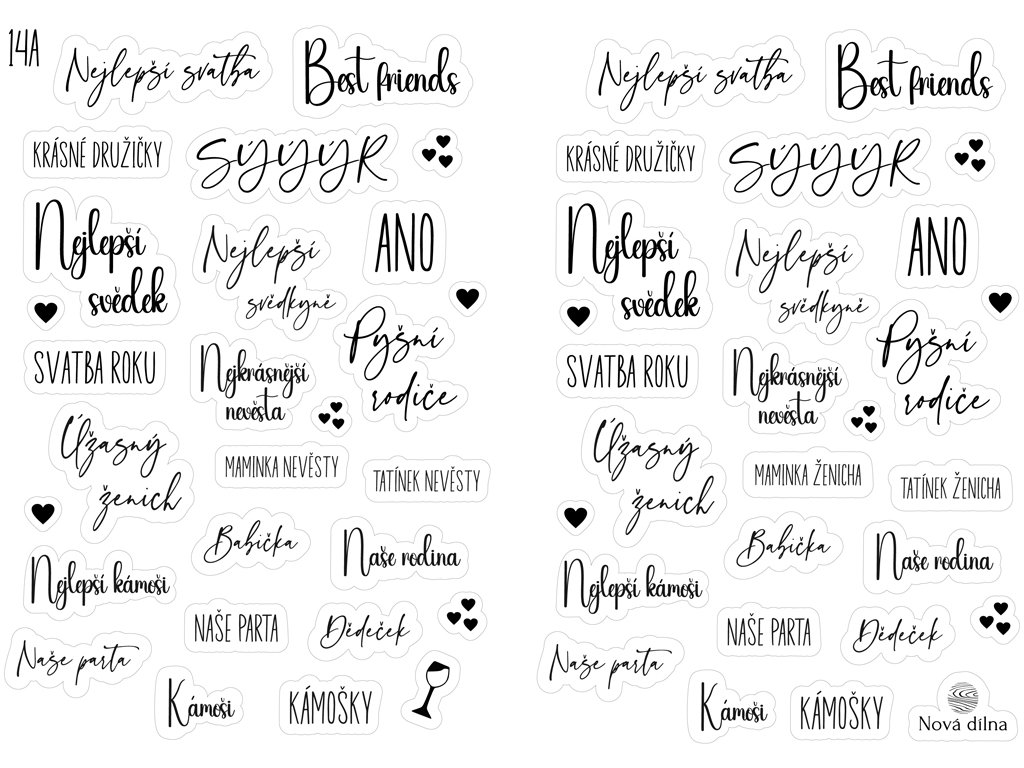 14A
Nejlepší svatba
Best friends
KRÁSNÉ DRUŽIČKY
SÝÝÝR
Nejlepší
svědek
Nejlepší
svědkyně
ANO
SVATBA ROKU
Nejkrásnější
nevěsta
Pyšní
rodiče
Úžasný
ženich
MAMINKA NEVĚSTY
TATÍNEK NEVĚSTY
Babička
Naše rodina
Nejlepší kámoši
NAŠE PARTA
Dědeček
Naše parta
Kámoši
KÁMOŠKY
Nejlepší svatba
Best friends
KRÁSNÉ DRUŽIČKY
SÝÝÝR
Nejlepší
svědek
Nejlepší
svědkyně
ANO
SVATBA ROKU
Nejkrásnější
nevěsta
Pyšní
rodiče
Úžasný
ženich
MAMINKA ŽENICHA
TATÍNEK ŽENICHA
Babička
Naše rodina
Nejlepší kámoši
NAŠE PARTA
Dědeček
Naše parta
Kámoši
KÁMOŠKY
Nová dílna